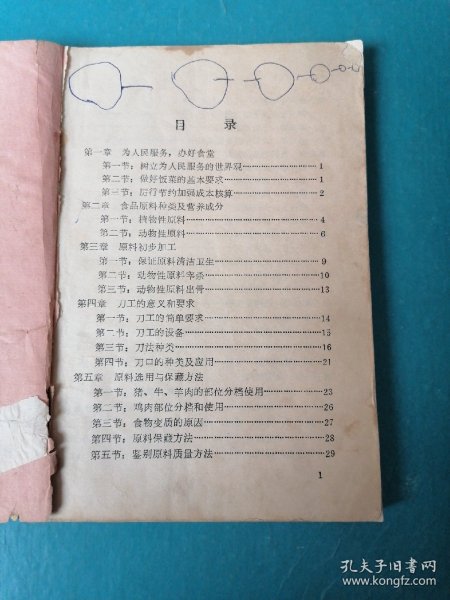 目 录
第一章 为人民服务，办好食堂
第一节：树立为人民服务的世界观……………1
第二节：做好饭菜的基本要求……………1
第三节：厉行节约加强成本核算……………2
第二章 食品原料种类及营养成分
第一节：植物性原料……………4
第二节：动物性原料……………6
第三章 原料初步加工
第一节：保证原料清洁卫生……………9
第二节：动物性原料宰杀……………10
第三节：动物性原料出骨……………13
第四章 刀工的意义和要求
第一节：刀工的简单要求……………14
第二节：刀工的设备……………15
第三节：刀法种类……………16
第四节：刀口的种类及应用……………21
第五章 原料选用与保藏方法
第一节：猪、牛、羊肉的部位分档使用……………23
第二节：鸡肉部位分档和使用……………26
第三节：食物变质的原因……………27
第四节：原料保藏方法……………28
第五节：鉴别原料质量方法……………29
1
孔夫子旧书网
www.kongfz.com